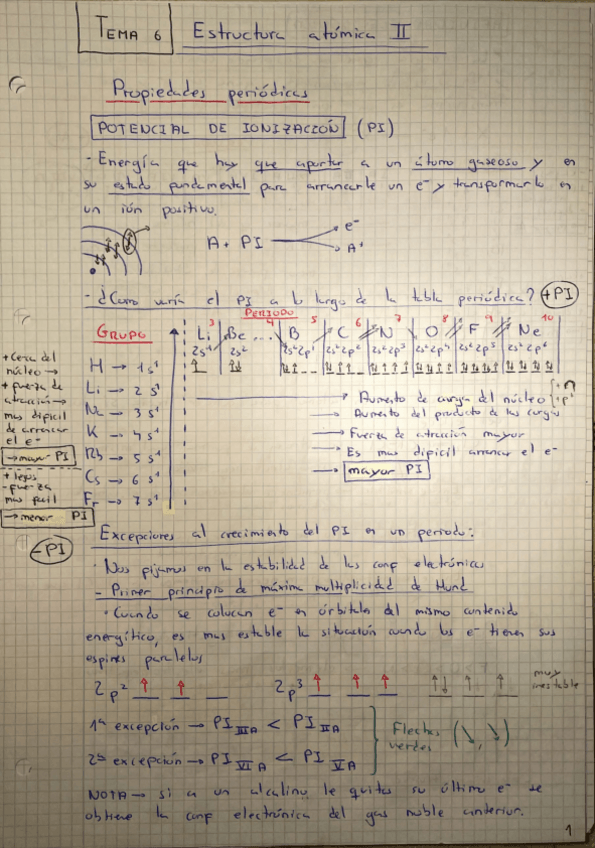 TEMA 6 Estructura atómica II
Propiedades periódicas
POTENCIAL DE IONIZACIÓN (PI)
- Energía que hay que aportar a un átomo gaseoso y en
su estado fundamental para arrancarle un e⁻ y transformarlo en
un ión positivo.
A + PI → e⁻
A⁺
- ¿Como varía el PI a lo largo de la tabla periódica? +PI
PERIODO
GRUPO
3 4 5 6 7 8 9 10
Li Be ... B C N O F Ne
2s¹ 2s² 2s²2p¹ 2s²2p² 2s²2p³ 2s²2p⁴ 2s²2p⁵ 2s²2p⁶
H → 1s¹
Li → 2s¹
Na → 3s¹
K → 4s¹
Rb → 5s¹
Cs → 6s¹
Fr → 7s¹
+ Cerca del
núcleo →
+ fuerza de
atracción →
mas dificil
de arrancar
el e⁻
→ mayor PI
+ lejos
- fuerza
mas facil
→ menor PI
- PI
→ Aumento de carga del núcleo
→ Aumento del producto de las cargas
→ Fuerza de atracción mayor
→ Es mas dificil arrancar el e⁻
→ mayor PI
Excepciones al crecimiento del PI en un periodo:
· Nos fijamos en la estabilidad de las conf electrónicas
- Primer principio de máxima multiplicidad de Hund
· Cuando se colocan e⁻ en órbitales del mismo contenido
energético, es mas estable la situación cuando los e⁻ tienen sus
espines paralelos
2p² ↑ ↑ _ 2p³ ↑ ↑ ↑ ↑↓ ↑ _ muy
inestable
1ª excepción → PI IIIA < PI IIA
Flechas
verdes (↘, ↘)
2ª excepción → PI VIA < PI VA
NOTA → si a un alcalino le quitas su último e⁻ se
obtiene la conf electrónica del gas noble anterior.
1